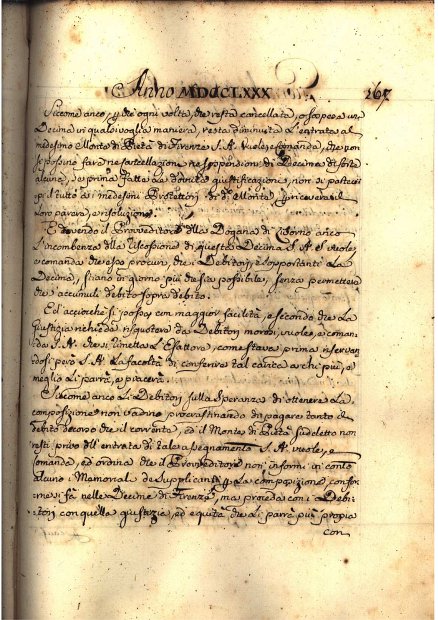 Anno MDCCLXXX 267
Siccome anco, ogni volta, che resta cancellata, o sospesa una
Decima in qualsivoglia maniera, resta diminuita l'entrata al
medesimo Monte di Pietà di Firenze S. A. Vuole, e Comanda, che non
si possino fare ne Cancellazioni, ne sospensioni di Decime di sorte
alcuna, se prima fatte le dovute giustificazioni, non si partecipi
il tutto a i medesimi Protettori di d.º Monte, e ricevere il
loro parere, e risoluzione.
Et avendo il Provveditore della Dogana di Livorno anco
l'incombenza della riscossione di questa Decima S. A. S. vuole,
e comanda che esso procuri, che i Debitori, e sopportanti la
Decima, stiano in giorno più che sia possibile, senza permettere
che accumuli debito sopra debito.
Ed acciochè si possa con maggior facilità, e secondo che la
Giustizia richieda risquotere da Debitori morosi, vuole, e coman-
da S. A. che si rimetta l'Esattore, come stava prima riservan-
dosi però S. A. la facoltà di conferire tal carica a chi più, e
meglio li parrà, e piacerà.
Siccome anco li Debitori sulla speranza di ottenere la
composizione non vadino procrastinando di pagare tanto il
debito decorso che il corrente, ed il Monte di Pietà sudetto non
resti privo dell'entrata di tale assegnamento S. A. vuole, e
Comanda, ed ordina che il Provveditore non informi in conto
alcuno Memoriale de Supplicanti la composizione, confor-
me si fà nelle Decime di Firenze, ma proceda con i Debi-
tori con quella giustizia, ed equità che li parrà più propria
con